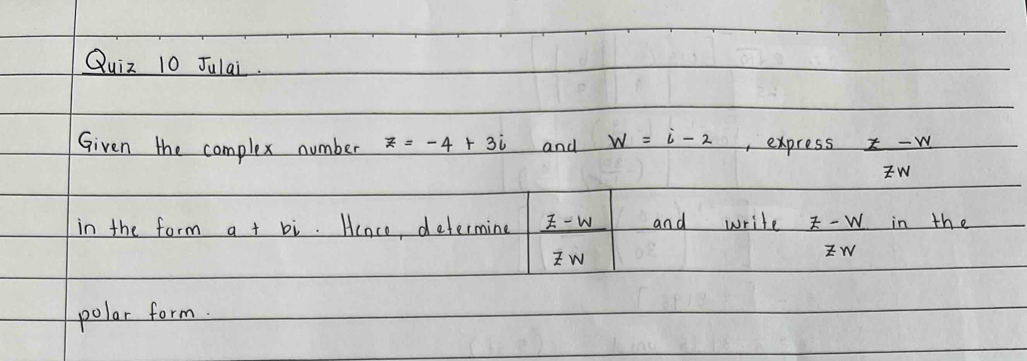 Quiz 10 Julai.
Given the complex number z = -4 + 3i and W = i - 2, express z - w
zw
in the form a + bi. Hence, determine | z - w | and write z - w in the
zw zw
polar form.